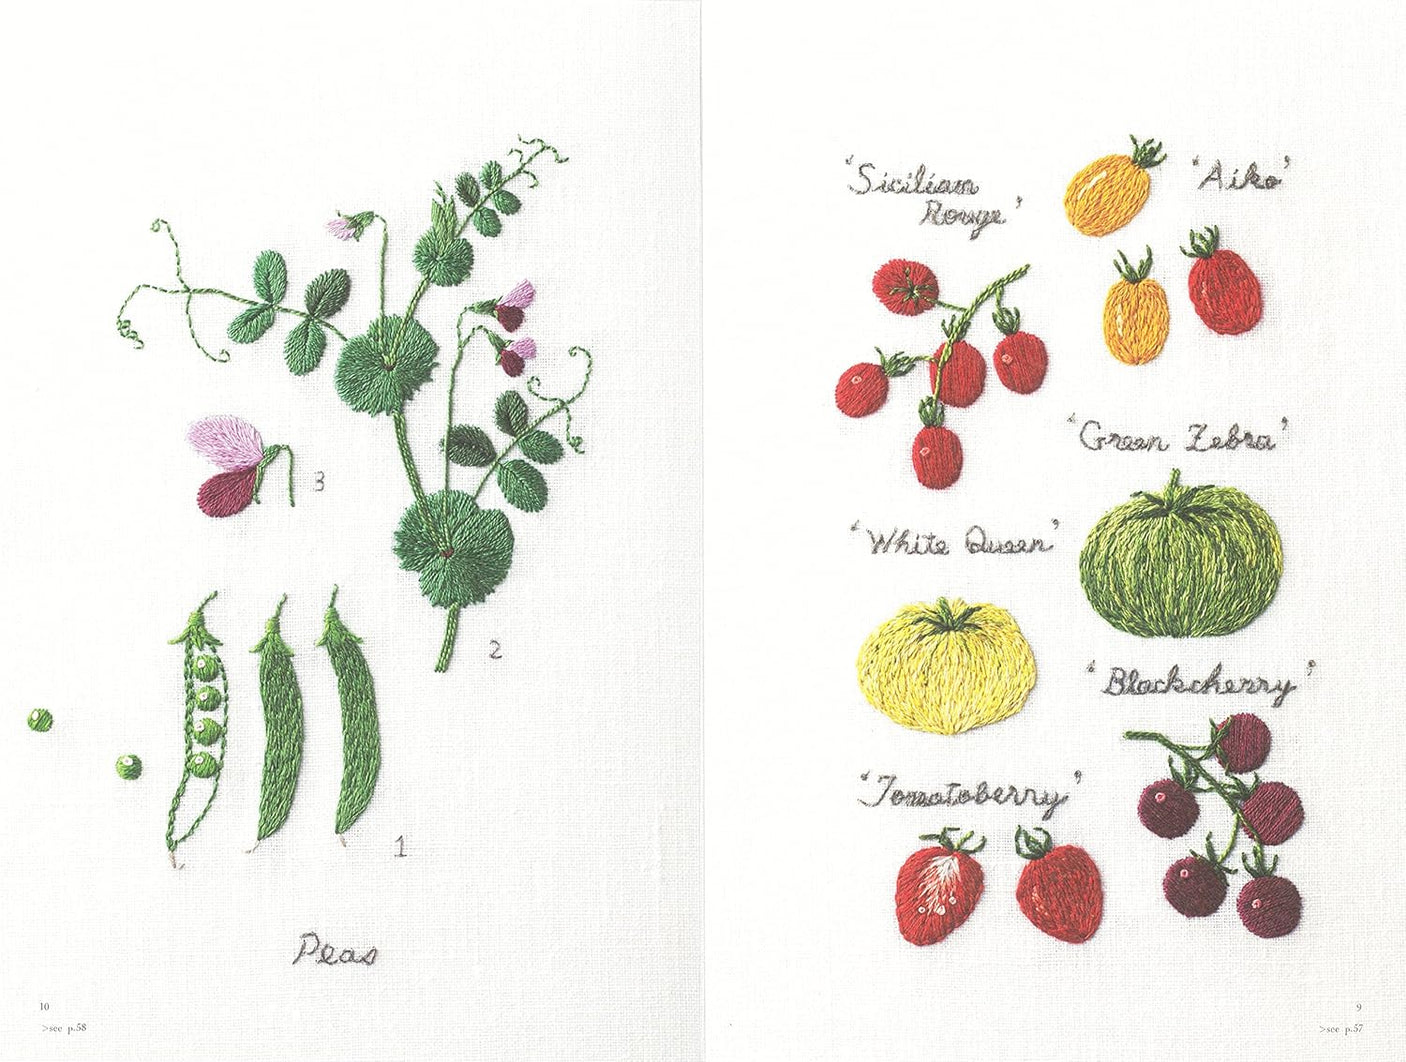 3
2
1
Peas
10
>see p.58
'Sicilian
Rouge'
'Aiko'
'Green Zebra'
'White Queen'
'Blackcherry'
'Tomatoberry'
9
>see p.57